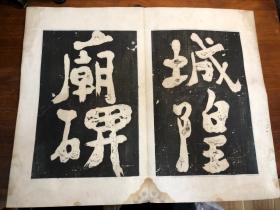 城隍
廟碑